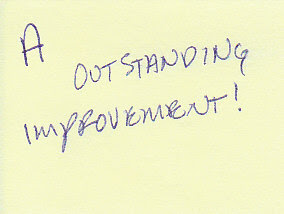 A
OUTSTANDING
IMPROVEMENT!